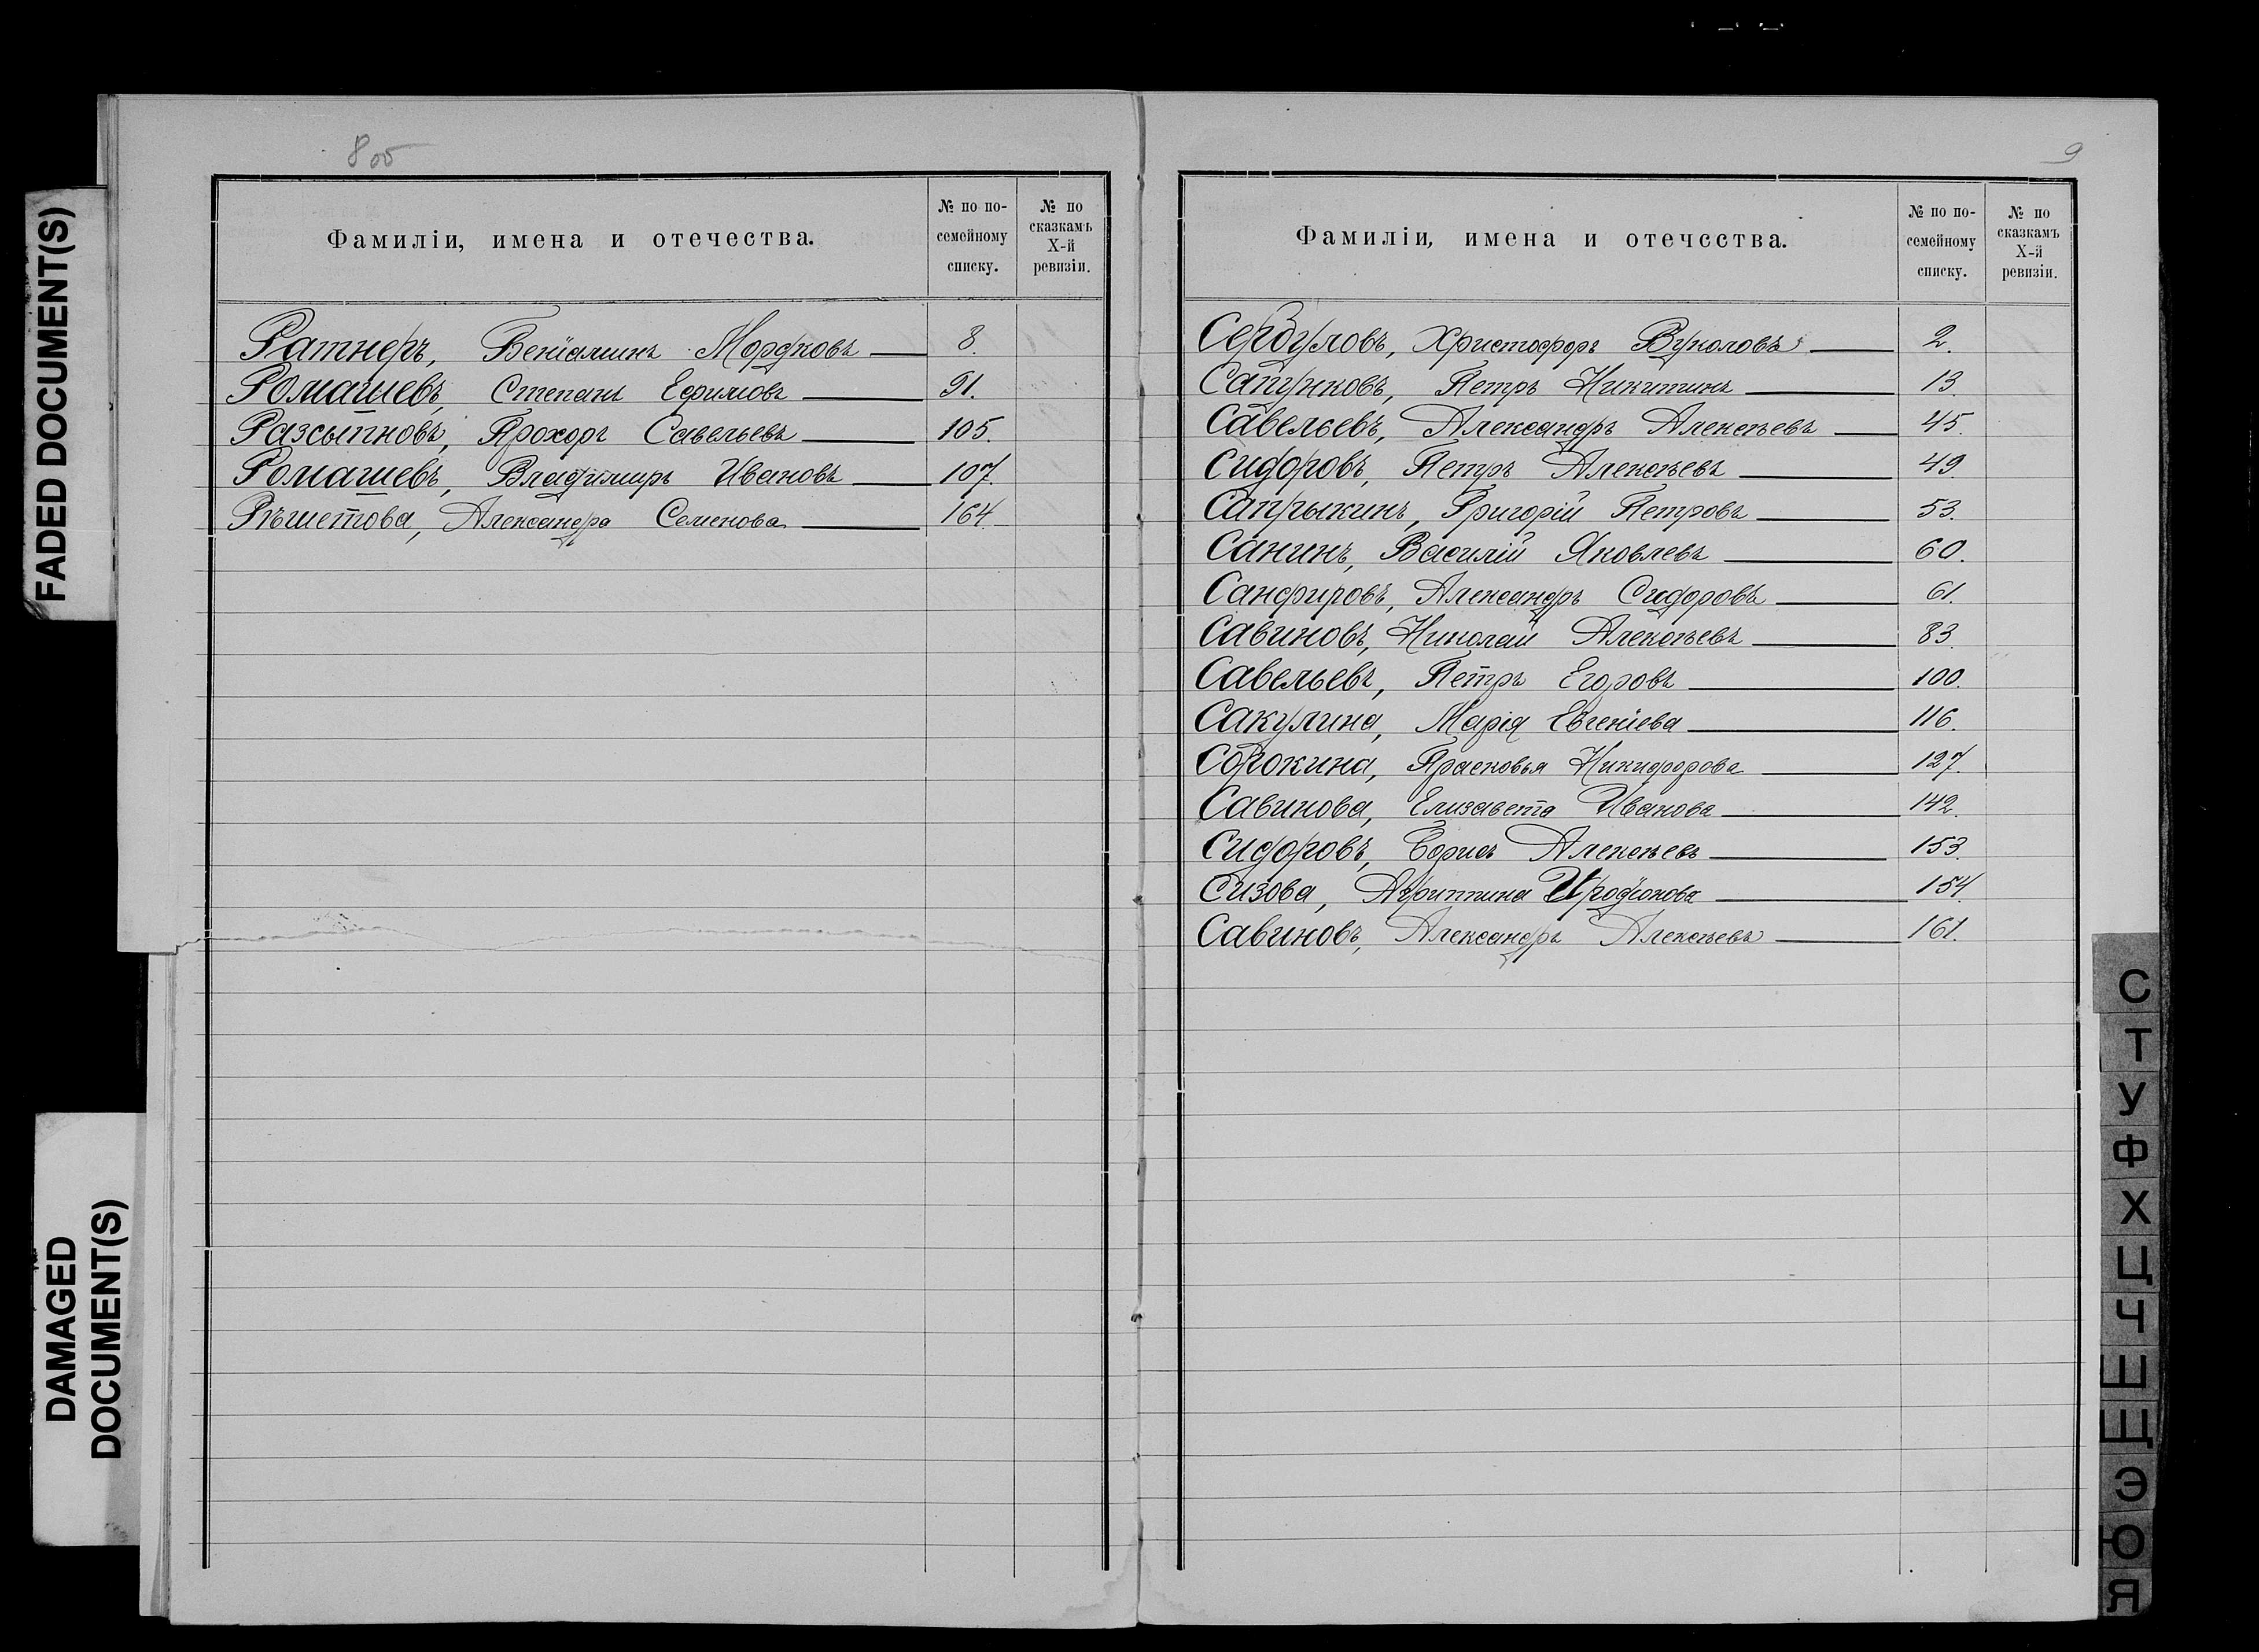 FADED DOCUMENT(S)
DAMAGED
DOCUMENT(S)
8 об
Фамиліи, имена и отечества.
№ по по-
семейному
списку.
№ по
сказкамъ
X-й
ревизіи.
Ратнеръ, Веніаминъ Мордковъ 8.
Ромашевъ, Степанъ Ефимовъ 91.
Разсыпновъ, Прохоръ Савельевъ 105.
Ромашевъ, Владиміръ Ивановъ 107.
Рѣшетова, Александра Семенова 164.
9
Фамиліи, имена и отечества.
№ по по-
семейному
списку.
№ по
сказкамъ
X-й
ревизіи.
Христофоръ Вуколовъ 2.
Сапунковъ, Петръ Никитинъ 13.
Савельевъ, Александръ Алексѣевъ 45.
Сидоровъ, Петръ Алексѣевъ 49.
Сапрыкинъ, Григорій Петровъ 53.
Санинъ, Василій Яковлевъ 60.
Санфировъ, Александръ Сидоровъ 61.
Савиновъ, Николай Алексѣевъ 83.
Савельевъ, Петръ Егоровъ 100.
Сакулина, Марія Евгеніева 116.
Сорокина, Прасковья Никифорова 127.
Савинова, Елизавета Иванова 142.
Сидоровъ, Борисъ Алексѣевъ 153.
Сизова, Агриппина Иродіонова 154.
Савиновъ, Александръ Алексѣевъ 161.
С
Т
У
Ф
Х
Ц
Ч
Ш
Щ
Э
Ю
Я